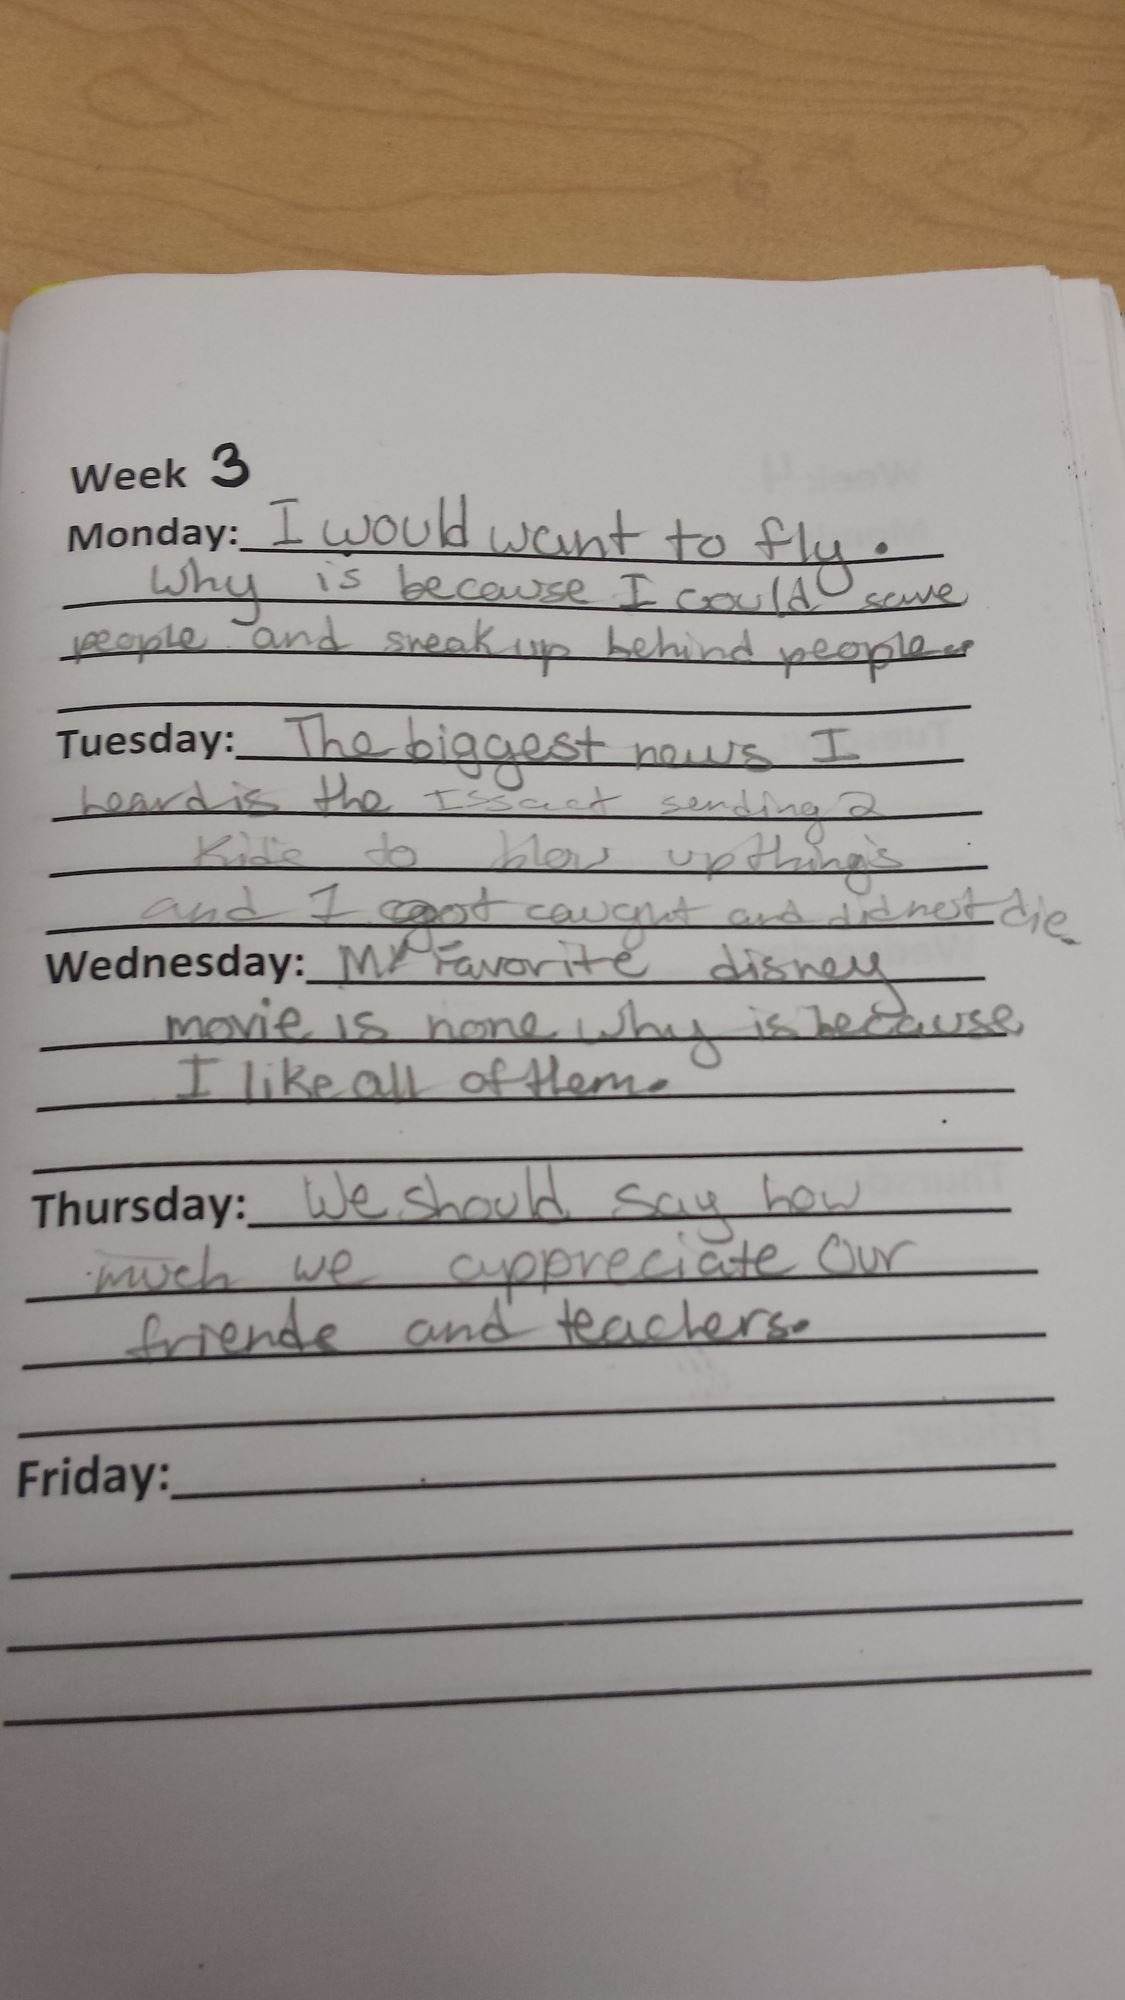 Week 3
Monday: I would want to fly.
Why is because I could save
people and sneak up behind people.
Tuesday: The biggest news I
heard is the sending 2
Kids to blow up things
and 1 got caught and did not die.
Wednesday: My Favorite disney
movie is none why is because
I like all of them.
Thursday: We should say how
much we appreciate Our
friends and teachers.
Friday: